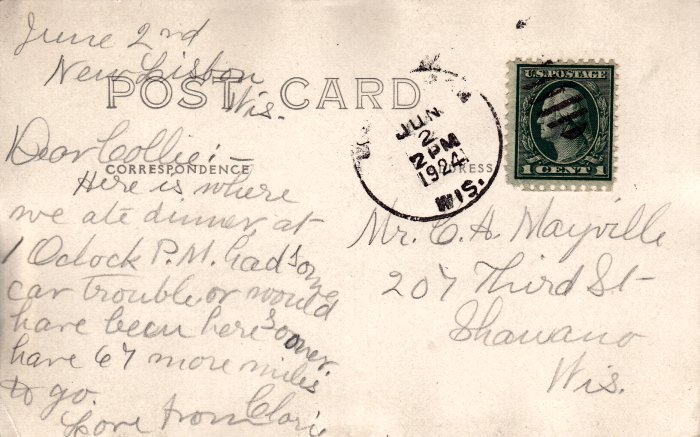 June 2nd
New Lisbon
Wis.
POST CARD
Dear Collie:—
CORRESPONDENCE
Here is where
we ate dinner, at
1 Oclock P.M. had some
car trouble, or would
have been here sooner.
have 67 more miles
to go.
Love from
JUN
2
2 PM
1924
WIS.
U.S. POSTAGE
1 CENT 1
Mr. C. A. Mayville
207 Third St
Shawano
Wis.